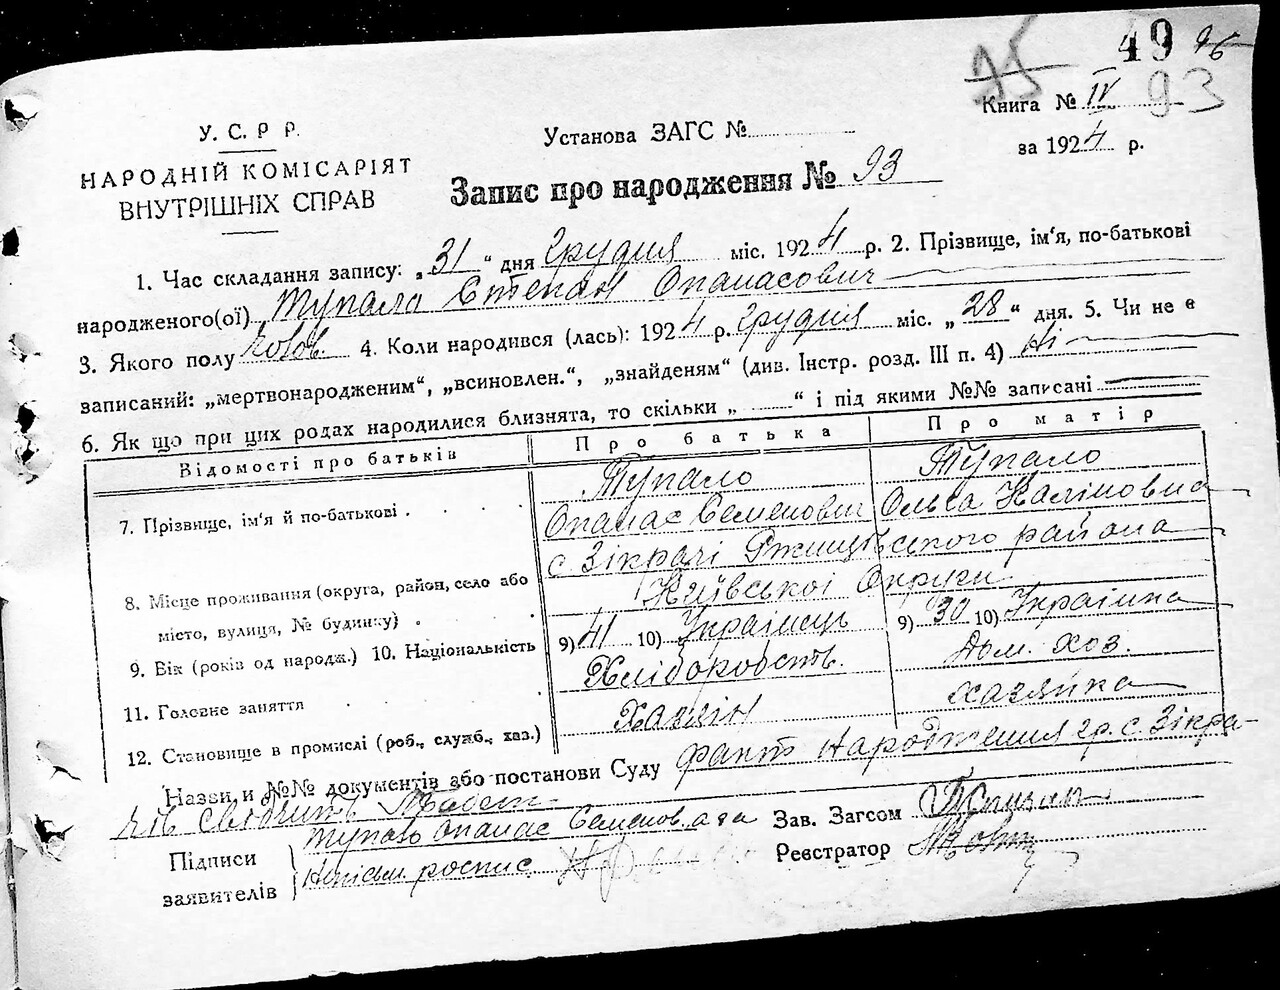 49 96
75
Книга № IV 93
У. С. Р Р.
НАРОДНІЙ КОМІСАРІЯТ
ВНУТРІШНІХ СПРАВ
Установа ЗАГС №
за 1924 р.
Запис про народження № 93
1. Час складання запису: „31“ дня Грудня міс. 1924 р. 2. Прізвище, ім'я, по-батькові
народженого(ої) Тупало Степан Опанасович
3. Якого полу чолов. 4. Коли народився (лась): 1924 р. Грудня міс. „28“ дня. 5. Чи не є
записаний: „мертвонародженим“, „всиновлен.“, „знайденям“ (див. Інстр. розд. III п. 4) Ні
6. Як що при цих родах народилися близнята, то скільки „ “ і під якими №№ записані
Відомості про батьків Про батька Про матір
7. Прізвище, ім'я й по-батькові Тупало Тупало
Опанас Семенович Ольга Калиновна
8. Місце проживання (округа, район, село або с Зікрачі Ржищівського района
місто, вулиця, № будинку) Київської Округи
9. Вік (років од народж.) 10. Національність 9) 41 10) Українець 9) 30 10) Українка
11. Головне заняття Хліборобств. Дом. хоз.
12. Становище в промислі (роб., служб., хаз.) Хазяїн хазяйка
Назви и №№ документів або постанови Суду факт народження гр. с. Зікра-
чів свідчить
Тупало Опанас Семенов. а за Зав. Загсом
Підписи
заявителів
роспис Реєстратор